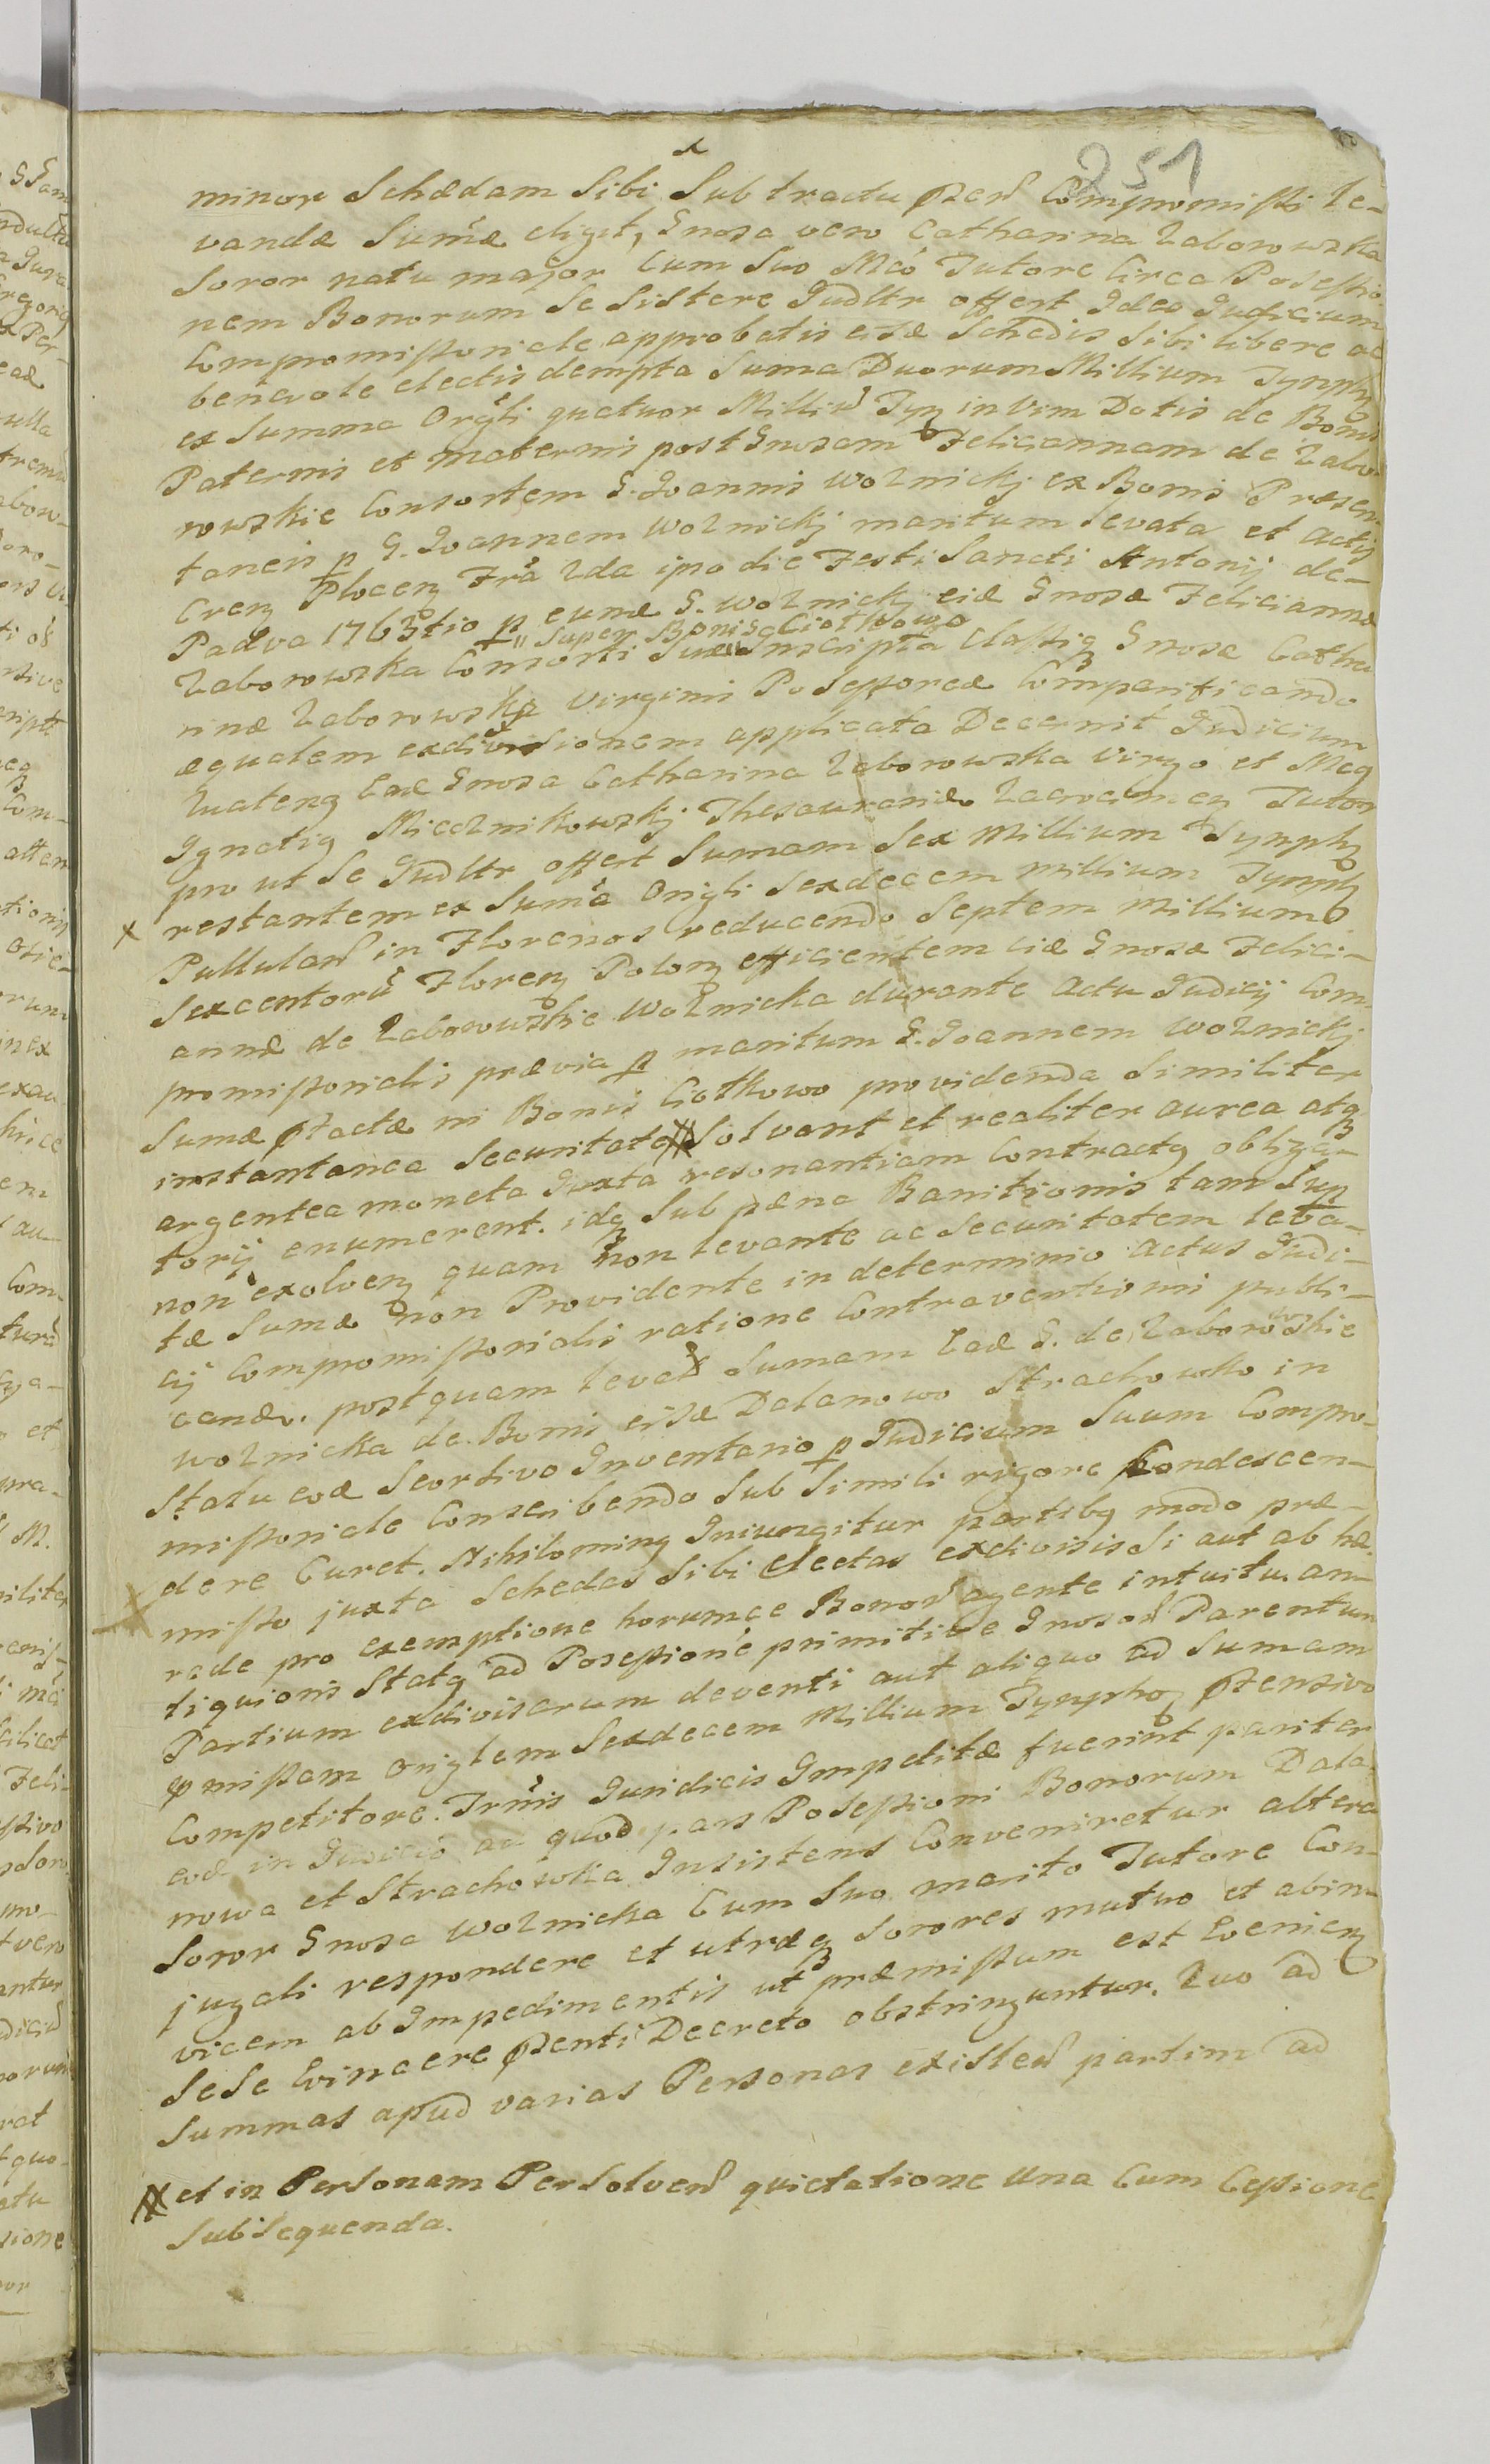 251
minor Schædam Sibi Sub tractu Compromissi le-
vandæ Sumæ eligit, Gnosa vero Catharina Zaborowska
Soror natu major Cum Suo Mco Tutore Circa Posessio-
nem Bonorum Se Sistere Judltr offert Ideo Judicium
Compromissoriale approbatis eisd Schedis Sibi libere ac
benevole electis dempta Suma Duorum Millium Tynph
ex Summa Orgli quatuor Milliu Tyn in Vim Dotis de Bonis
Paternis et maternis post Gnosam Feliciannam de Zabo-
rowskie Consortem G. Joannis Woznickj ex Bonis Præsen-
taneis p G. Joannem Woznickj maritum levata et Actis
Cren Plocen Fra 2da ipso die Festi Sancti Antonij de-
Padva 1763tio p eund G. Woznickj eid Gnosæ Felicianna
"Super Bonis Ciotkowo
Zaborowska Consorti Suæ" Inscripta Classiq Gnosæ Catha
rinæ Zaborowskæ Virgini Posessoreæ Comparificando
æqualem exdivisionem applicata Decernit Judicium
Quateng Ead Gnosa Catharina Zaborowska Virgo et Mcq
Ignatig Miecznikowskj Thesaurariæ Zacrocimen Tutor
pro ut Se Judltr offert Sumam Sex Millium Tynph
x restantem ex Suma Origli Sexdecem millium Tynph
Pullulan in Florenos reducendo Septem Millium
Sexcentoru Floren Polon efficientem eid Gnosæ Felici-
annæ de Zaborowskie Woznicka durante Actu Judicij Com-
promissorialis prævia p maritum G. Joannem Woznickj
Sumæ ptactæ in Bonis Ciotkowo providenda Similiter
instantanea Securitate # Solvant et realiter aurea atq
argentea moneta Juxta resonantiam Contractq obliga-
torij enumerent. idq Sub pæna Banitionis tam Sup
non exolven quam non levante ac Securitatem leva-
tæ Sumæ non Providente in determinio Actus Judi-
cij Compromissorialis ratione Contraventionis publi-
candæ. postquam levat Sumam Ead G. de Zaborowskie
Woznicka de Bonis eisd Dalanowo Strachowko in
Statu eod Seortivo Inventario p Judicium Suum Compro-
missoriale Conscribendo Sub Simili rigore Condescen-
dere Curet. Nihiloming Iniungitur partibq modo præ-
x misso juxta Schedas Sibi electas exdivisis Si aut ab hæ-
rede pro exemptione horumce Bonor agente intuitu an-
tiquioris Statq ad Posessione primitive Gnosor Parentum
Partium exdivisarum deventi aut aliquo ad Sumam
pmissam Origlem Sexdecem Millium Tynpho ptensivo
Competitore. Trnis Juridicis Impetitæ fuerint pariter
eod in Judicio ac quod pars Posessioni Bonorum Dala-
nowa et Strachowka Insistens Conveniretur altera
Soror Gnosa Woznicka Cum Suo marito Tutore Con-
jugali respondere et utræq Sorores mutuo et abin-
vicem ab Impedimentis ut præmissum est Evenien
Sese Evincere pzenti Decreto obstringuntur. Quo ad
Summas apud varias Personas existen partim ad
# et in Personam Persolven quietatione Una Cum Cessione
Subsequenda.